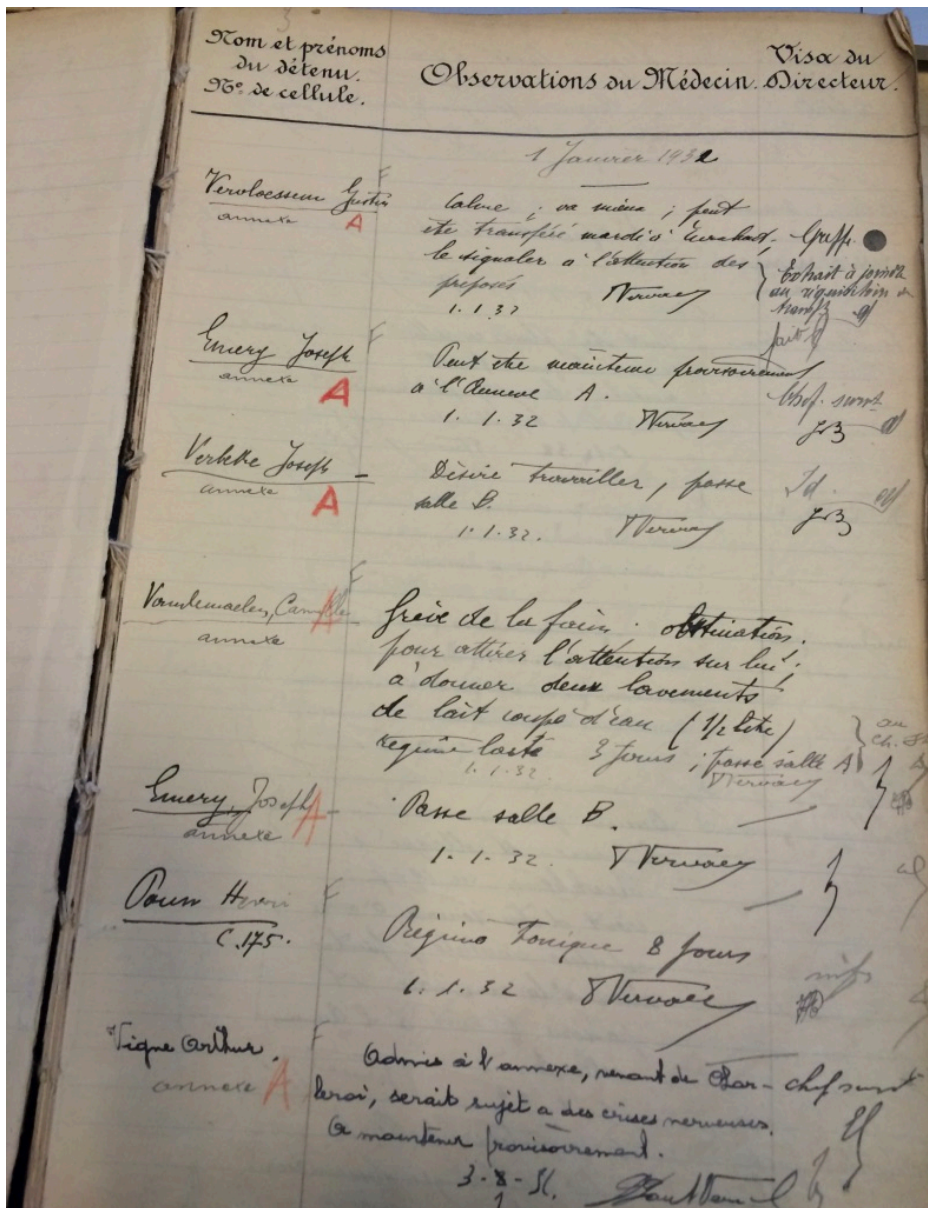 Nom et prénoms
du détenu.
N° de cellule.
Observations du Médecin.
Visa du
Directeur.
1 Janvier 1932
annexe
A
Calme ; va mieux ; peut
être transféré mardi à
le signaler à l'attention des
préposés Vervaeck
1.1.32
Greffe.
Extrait à joindre
fait
Emery Joseph
annexe
A
Peut être maintenu provisoirement
à l'Annexe A.
1. 1. 32 Vervaeck
Chef. survt
Verbeke Joseph
annexe
A
Désire travailler, passe
salle B.
1. 1. 32. Vervaeck
Id.
annexe
A
Grève de la faim. obstination.
pour attirer l'attention sur lui!
à donner deux lavements
de lait coupé d'eau (1/2 litre)
régime lacté 3 jours ; passe salle A
1. 1. 32. Vervaeck
Emery, Joseph
annexe
A
Passe salle B.
1. 1. 32. Vervaeck
Henri
C.175.
Régime Tonique 8 jours
1. 1. 32 Vervaeck
Vigne Arthur.
annexe
A
Admis à l'annexe, venant de Char-
leroi, serait sujet a des crises nerveuses.
A maintenir provisoirement.
chef survt